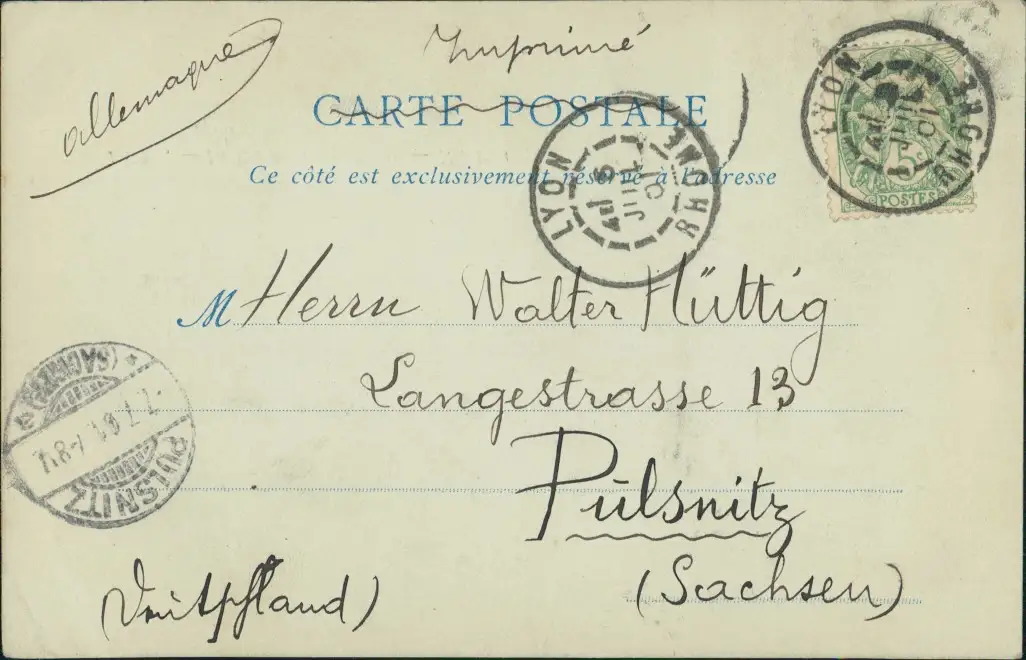 Imprimé
allemagne
CARTE POSTALE
Ce côté est exclusivement réservé à l'adresse
LYON RHONE
4E 5
JUIL
01
LYON RHONE
4E
JUIL
01
5c
POSTES
M Herrn Walter Hüttig
Langestrasse 13
Pulsnitz
(Sachsen)
(Deutschland)
PULSNITZ
7.7.01
(SACHSEN)